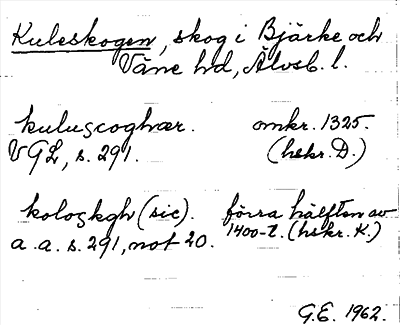 Kuleskogen, skog i Bjärke och
Väne hd, Älvsb. l.
kuluscoghær. omkr. 1325.
VGL, s. 291. (hskr. D.)
koloskgh (sic). förra hälften av
a. a. s. 291, not 20. 1400-t. (hskr. K.)
G.E. 1962.